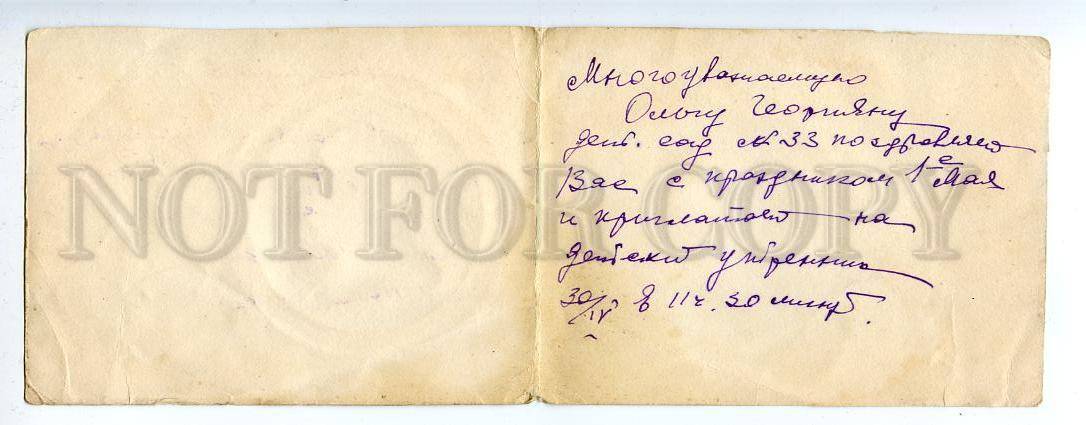 Многоуважаемую
Ольгу Георгиевну
дет. сад № 33 поздравляет
Вас с праздником 1е Мая
и приглашает на
детский утренник
30/IV в 11 ч. 30 минут.
NOT FOR COPY